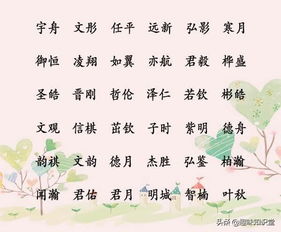 宇舟 文彤 任平 远新 弘影 寒月
御恒 凌翔 如翼 亦航 君毅 桦盛
圣皓 晋刚 哲伦 泽仁 若钦 彬皓
文观 信棋 茁钦 子时 紫明 德舟
韵祺 文韵 德月 杰胜 弘鉴 柏瀚
闻瀚 君佑 君月 明城 智楠 叶秋
头条 @趣味知识堂